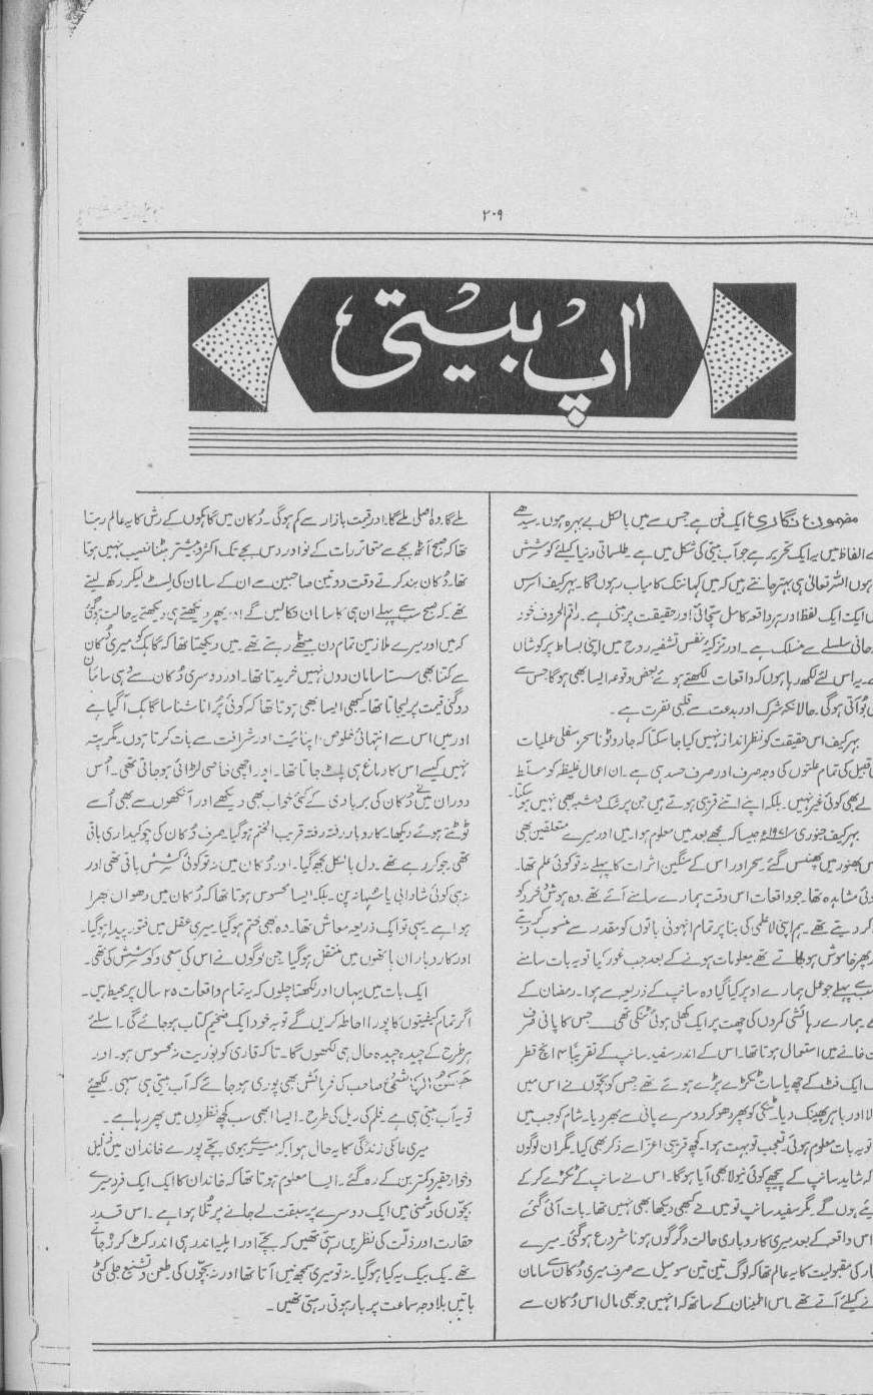 ۲۰۹
اپ بیتی
مضمون نگاری ایک فن ہے جس سے میں بالکل بے بہرہ ہوں۔ سیدھے
الفاظ میں یہ ایک تحریر ہے جو آپ بیتی کی شکل میں ہے۔ طلسماتی دنیا کیلئے کوشش
ہوں اللہ تعالیٰ ہی بہتر جانتے ہیں کہ میں کہاں تک کامیاب رہوں گا۔ بہرکیف اس
ایک ایک لفظ اور ہر واقعہ کامل سچائی اور حقیقت پر مبنی ہے۔ راقم الحروف خود
سلسلے سے منسلک ہے۔ اور تزکیہ نفس تشفیہ روح میں اپنی بساط پر کوشاں
یہ اس لئے لکھ رہا ہوں کہ واقعات لکھتے ہوئے بعض وقوعہ ایسا بھی ہوگا جس سے
آتی ہوگی۔ حالانکہ شرک اور بدعت سے قلبی نفرت ہے۔
بہرکیف اس حقیقت کو نظر انداز نہیں کیا جاسکتا کہ جادو ٹونا سحر سفلی عملیات
قبیل کی تمام علتوں کی وجہ صرف اور صرف حسد ہی ہے۔ ان اعمال غلیظہ کو مسلط
والے بھی کوئی غیر نہیں۔ بلکہ اپنے اتنے قریبی ہوتے ہیں جن پر شک و شبہ بھی نہیں ہو سکتا۔
بہرکیف جنوری ۱۹۷۱ء جیسا کہ مجھے بعد میں معلوم ہوا۔ میں اور میرے متعلقین بھی
بھنور میں پھنس گئے۔ سحر اور اس کے سنگین اثرات کا پہلے نہ تو کوئی علم تھا۔
کوئی مشاہدہ تھا۔ جو واقعات اس وقت ہمارے سامنے آئے تھے۔ وہ ہوش و خرد کو
کر دیتے تھے۔ ہم اپنی لاعلمی کی بنا پر تمام انہونی باتوں کو مقدر سے منسوب کر دیتے
پھر خاموش ہو جاتے تھے معلومات ہونے کے بعد جب غور کیا تو یہ بات سامنے
سب سے پہلے جو عمل ہمارے اوپر کیا گیا وہ سانپ کے ذریعے سے ہوا۔ رمضان کے
ہمارے رہائشی کمروں کی چھت پر ایک کھلی ہوئی ٹنکی تھی جس کا پانی صرف
خانے میں استعمال ہوتا تھا۔ اس کے اندر سفید سانپ کے تقریباً ۳ انچ قطر
ایک فٹ کے چھ یا سات ٹکڑے پڑے ہوئے تھے جس کو بچوں نے اس میں
اور باہر پھینک دیا۔ ٹنکی کو پھر دھو کر دوسرے پانی سے بھر دیا۔ شام کو جب میں
تو یہ بات معلوم ہوئی۔ تعجب تو بہت ہوا۔ کچھ قریبی اعزا سے ذکر بھی کیا۔ مگر ان لوگوں
کہ شاید سانپ کے پیچھے کوئی نیولا بھی آیا ہوگا۔ اس نے سانپ کے ٹکڑے کرکے
ہوں گے۔ مگر سفید سانپ تو میں نے کبھی دیکھا بھی نہیں تھا۔ بات آئی گئی
اس واقعہ کے بعد میری کاروباری حالت دگرگوں ہونا شروع ہوگئی۔ میرے
کی مقبولیت کا یہ عالم تھا کہ لوگ تین تین سو میل سے صرف میری دُکان سے سامان
کیلئے آتے تھے۔ اس اطمینان کے ساتھ کہ انہیں جو بھی مال اس دُکان سے
ملے گا۔ وہ اصلی ملے گا۔ اور قیمت بازار سے کم ہوگی۔ دُکان میں گاہکوں کے رش کا یہ عالم رہتا
تھا کہ صبح آٹھ بجے سے متواتر رات کے نو اور دس بجے تک اکثر و بیشتر ہٹنا نصیب نہیں ہوتا
تھا۔ دُکان بند کرتے وقت دو تین صاحبین سے ان کے سامان کی لسٹ لیکر رکھ لیتے
تھے۔ کہ صبح سب سے پہلے ان ہی کا سامان نکالیں گے۔ اور پھر دیکھتے ہی دیکھتے یہ حالت ہو گئی
کہ میں اور میرے ملازمین تمام دن بیٹھے رہتے تھے۔ میں دیکھتا تھا کہ گاہک میری دُکان
سے کتنا بھی سستا سامان دوں نہیں خریدتا تھا۔ اور دوسری دُکان سے وہی سامان
دوگنی قیمت پر لیجاتا تھا۔ کبھی ایسا بھی ہوتا تھا کہ کوئی پُرانا شناسا گاہک آگیا ہے
اور میں اس سے انتہائی خلوص اپنائیت اور شرافت سے بات کر رہا ہوں۔ مگر پتہ
نہیں کیسے اس کا دماغ ہی پلٹ جاتا تھا۔ اور اچھی خاصی لڑائی ہو جاتی تھی۔ اُس
دوران میں نے دُکان کی بربادی کے کئی خواب بھی دیکھے اور آنکھوں سے بھی اُسے
ٹوٹتے ہوئے دیکھا۔ کاروبار رفتہ رفتہ قریب الختم ہوگیا۔ صرف دُکان کی چوکیداری باقی
تھی۔ جو کر رہے تھے۔ دل بالکل بجھ گیا۔ اور دُکان میں نہ تو کوئی کشش باقی تھی اور
نہ ہی کوئی شادابی یا سُہانہ پن۔ بلکہ ایسا محسوس ہوتا تھا کہ دُکان میں دھواں بھرا
ہوا ہے۔ یہی تو ایک ذریعہ معاش تھا۔ وہ بھی ختم ہوگیا۔ میری عقل میں فتور پیدا ہوگیا۔
اور کاروبار ان ہاتھوں میں منتقل ہوگیا جن لوگوں نے اس کی سعی و کوشش کی تھی۔
ایک بات میں یہاں اور لکھتا چلوں کہ یہ تمام واقعات ۲۵ سال پر محیط ہیں۔
اگر تمام کیفیتوں کا پورا احاطہ کریں گے تو یہ خود ایک ضخیم کتاب ہو جائے گی۔ اسلئے
ہر طرح کے چیدہ چیدہ حال ہی لکھوں گا۔ تاکہ قاری کو بوریت نہ محسوس ہو۔ اور
حسن الہاشمی صاحب کی فرمائش بھی پوری ہو جائے کہ آپ بیتی ہی سہی۔ لکھئے
تو یہ آپ بیتی ہی ہے۔ فلم کی ریل کی طرح۔ ایسا ابھی سب کچھ نظروں میں پھر رہا ہے۔
میری عائلی زندگی کا یہ حال ہوا کہ میرے بیوی بچے پورے خاندان میں ذلیل
و خوار حقیر و کمترین کے رہ گئے۔ ایسا معلوم ہوتا تھا کہ خاندان کا ایک ایک فرد میرے
بچوں کی دشمنی میں ایک دوسرے پر سبقت لے جانے پر تُلا ہوا ہے۔ اس قدر
حقارت اور ذلت کی نظریں رہتی تھیں کہ بچے اور اہلیہ اندر ہی اندر کٹ کر رہ جاتے
تھے۔ یک بیک یہ کیا ہوگیا۔ نہ تو میری سمجھ میں آتا تھا اور نہ بچوں کی طعن و تشنیع جلی کٹی
باتیں بلاوجہ سماعت پر بار ہوتی رہتی تھیں۔